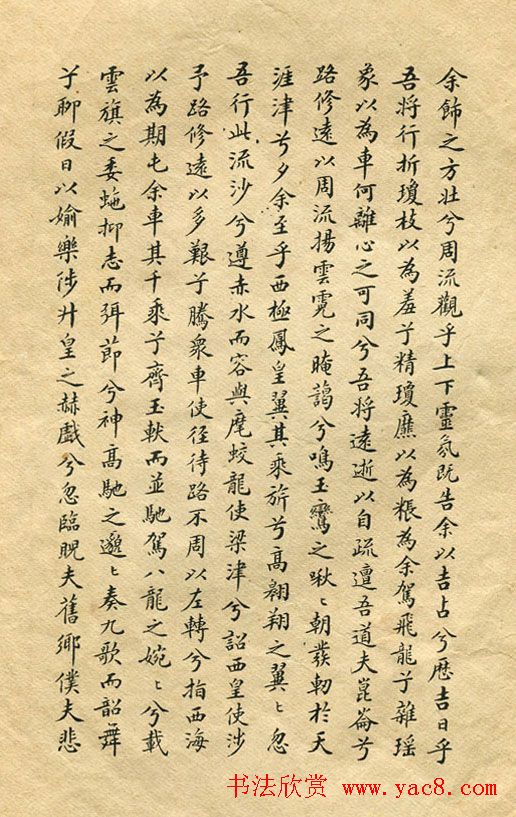 余飾之方壯兮周流觀乎上下靈氛既告余以吉占兮歷吉日乎
吾將行折瓊枝以為羞兮精瓊爢以為粻為余駕飛龍兮雜瑶
象以為車何離心之可同兮吾將遠逝以自疏邅吾道夫崑崙兮
路修遠以周流揚雲霓之晻藹兮鳴玉鸞之啾〻朝發軔於天
津兮夕余至乎西極鳳皇翼其乘旂兮高翱翔之翼〻忽
吾行此流沙兮遵赤水而容與麾蛟龍使梁津兮詔西皇使涉
予路修遠以多艱兮騰衆車使徑待路不周以左轉兮指西海
以為期屯余車其千乘兮齊玉軑而並馳駕八龍之婉〻兮載
雲旗之委蛇抑志而弭節兮神高馳之邈〻奏九歌而舞韶
兮聊假日以媮樂陟升皇之赫戲兮忽臨睨夫舊鄉僕夫悲
书法欣赏 www.yac8.com